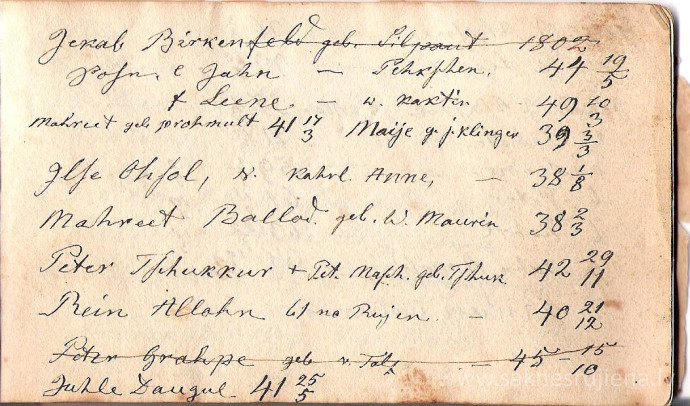 Jekab Birkenfeld geb. Silpaut 1802
John. e Jahn — Pehkschen. 44 19/5
+ Leene — w. Kaktin 40 10/3
Mahreet geb prohmult 41 17/3 Maije g. j. Klinger 39 3/3
Ilse Ohsol, N. Kahrl. Anne, — 38 1/8
Mahreet Ballod. geb. W. Maurin 38 2/3
Peter Tschukkur + Pet. Masch. geb. Tschuk 42 29/11
Rein Allohn bl no Rujen. — 40 21/12
Peter Grahpe geb v. — 45 15/10
Juhle Daugul 41 25/5
www.saknesrujiena.lv